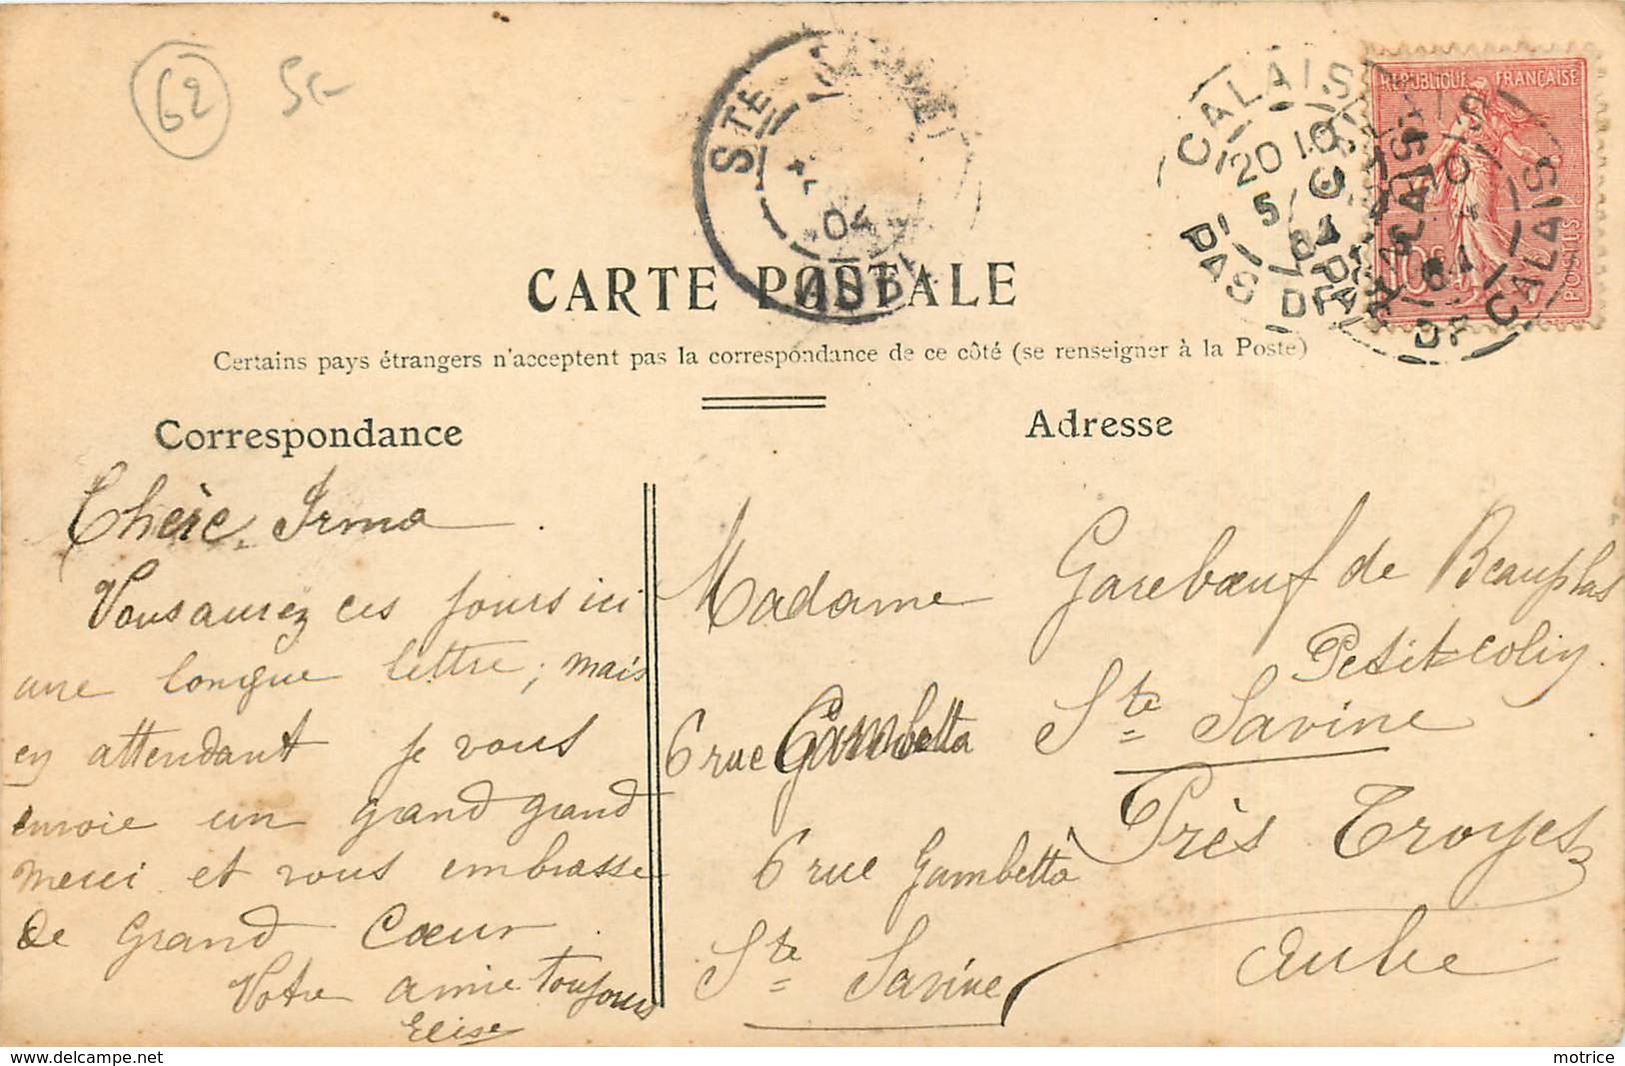 62 5-
STE SAVINE
04
AUBE
CALAIS
20 10
5
04
PAS DE CALAIS
REPUBLIQUE FRANÇAISE
10c
POSTES
CARTE POSTALE
Certains pays étrangers n'acceptent pas la correspondance de ce côté (se renseigner à la Poste)
Correspondance
Chère Irma
Vous aurez ces jours ici
une longue lettre, mais
en attendant je vous
envoie un grand grand
merci et vous embrasse
de Grand Cœur
Votre amie toujours
Elise
Adresse
Madame Garebœuf de Beauplas
Petit Colin
Ste Savine
6 rue Gambetta
Près Troyes
6 rue Gambetta
Aube
Ste Savine
www.delcampe.net
motrice